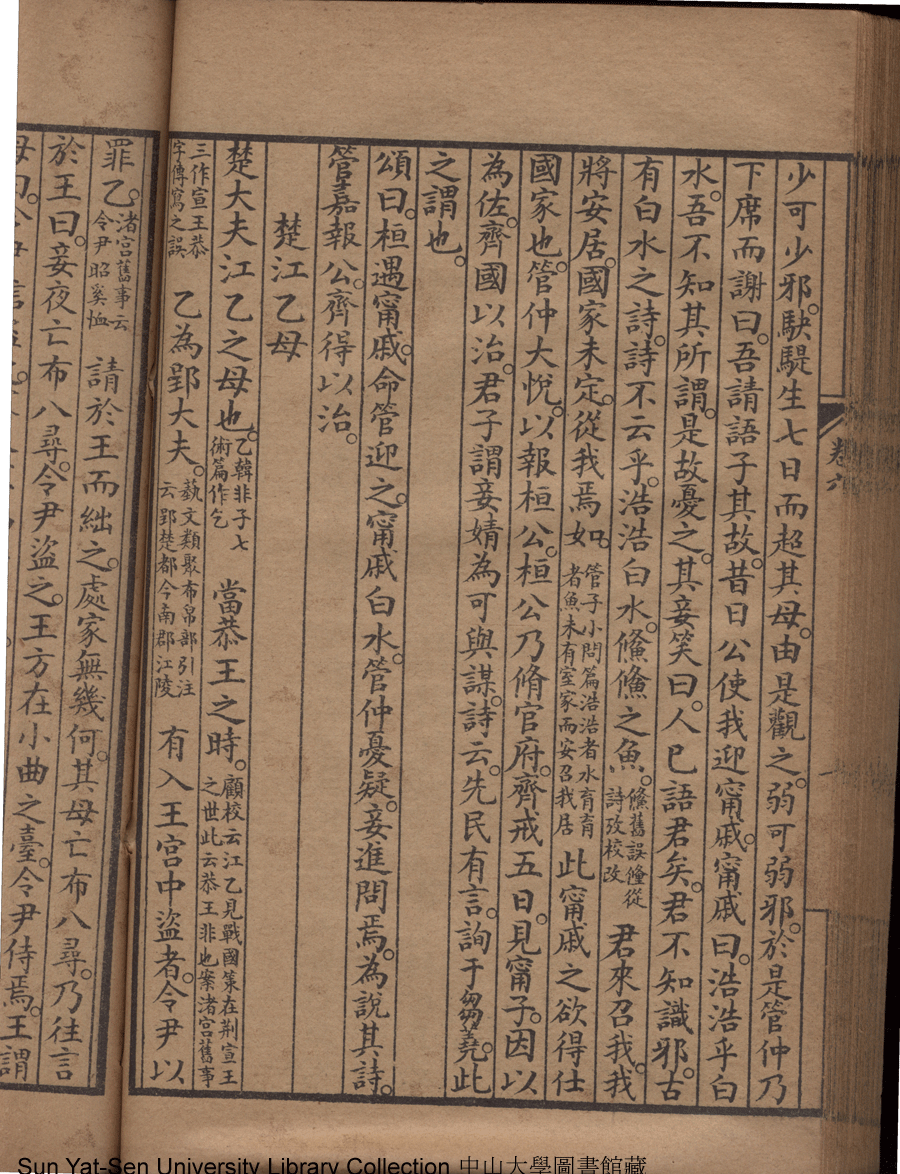 少可少邪。駃騠生七日而超其母。由是觀之。弱可弱邪。於是管仲乃
下席而謝曰。吾請語子其故。昔日公使我迎甯戚。甯戚曰。浩浩乎白
水。吾不知其所謂。是故憂之。其妾笑曰。人已語君矣。君不知識邪。古
有白水之詩。詩不云乎。浩浩白水。鯈鯈之魚。鯈舊誤儵從詩攷校改君來召我。我
將安居。國家未定。從我焉如。管子小問篇浩浩者水育育者魚未有室家而安召我居此甯戚之欲得仕
國家也。管仲大悅。以報桓公。桓公乃脩官府。齊戒五日。見甯子。因以
為佐。齊國以治。君子謂妾婧為可與謀。詩云。先民有言。詢于芻蕘。此
之謂也。
頌曰。桓遇甯戚。命管迎之。甯戚白水。管仲憂疑。妾進問焉。為說其詩。
管嘉報公。齊得以治。
楚江乙母
楚大夫江乙之母也。乙韓非子七術篇作乞當恭王之時。顧校云江乙見戰國策在荆宣王之世此云恭王非也案渚宮舊事
三作宣王恭字傳寫之誤乙為郢大夫。藝文類聚布帛部引注云郢楚都今南郡江陵有入王宮中盜者。令尹以
罪乙。渚宮舊事云令尹昭奚恤請於王而絀之。處家無幾何。其母亡布八尋。乃往言
於王曰。妾夜亡布八尋。令尹盜之。王方在小曲之臺。令尹侍焉。王謂
母曰。令尹信盜之
卷六
Sun Yat-Sen University Library Collection 中山大學圖書館藏